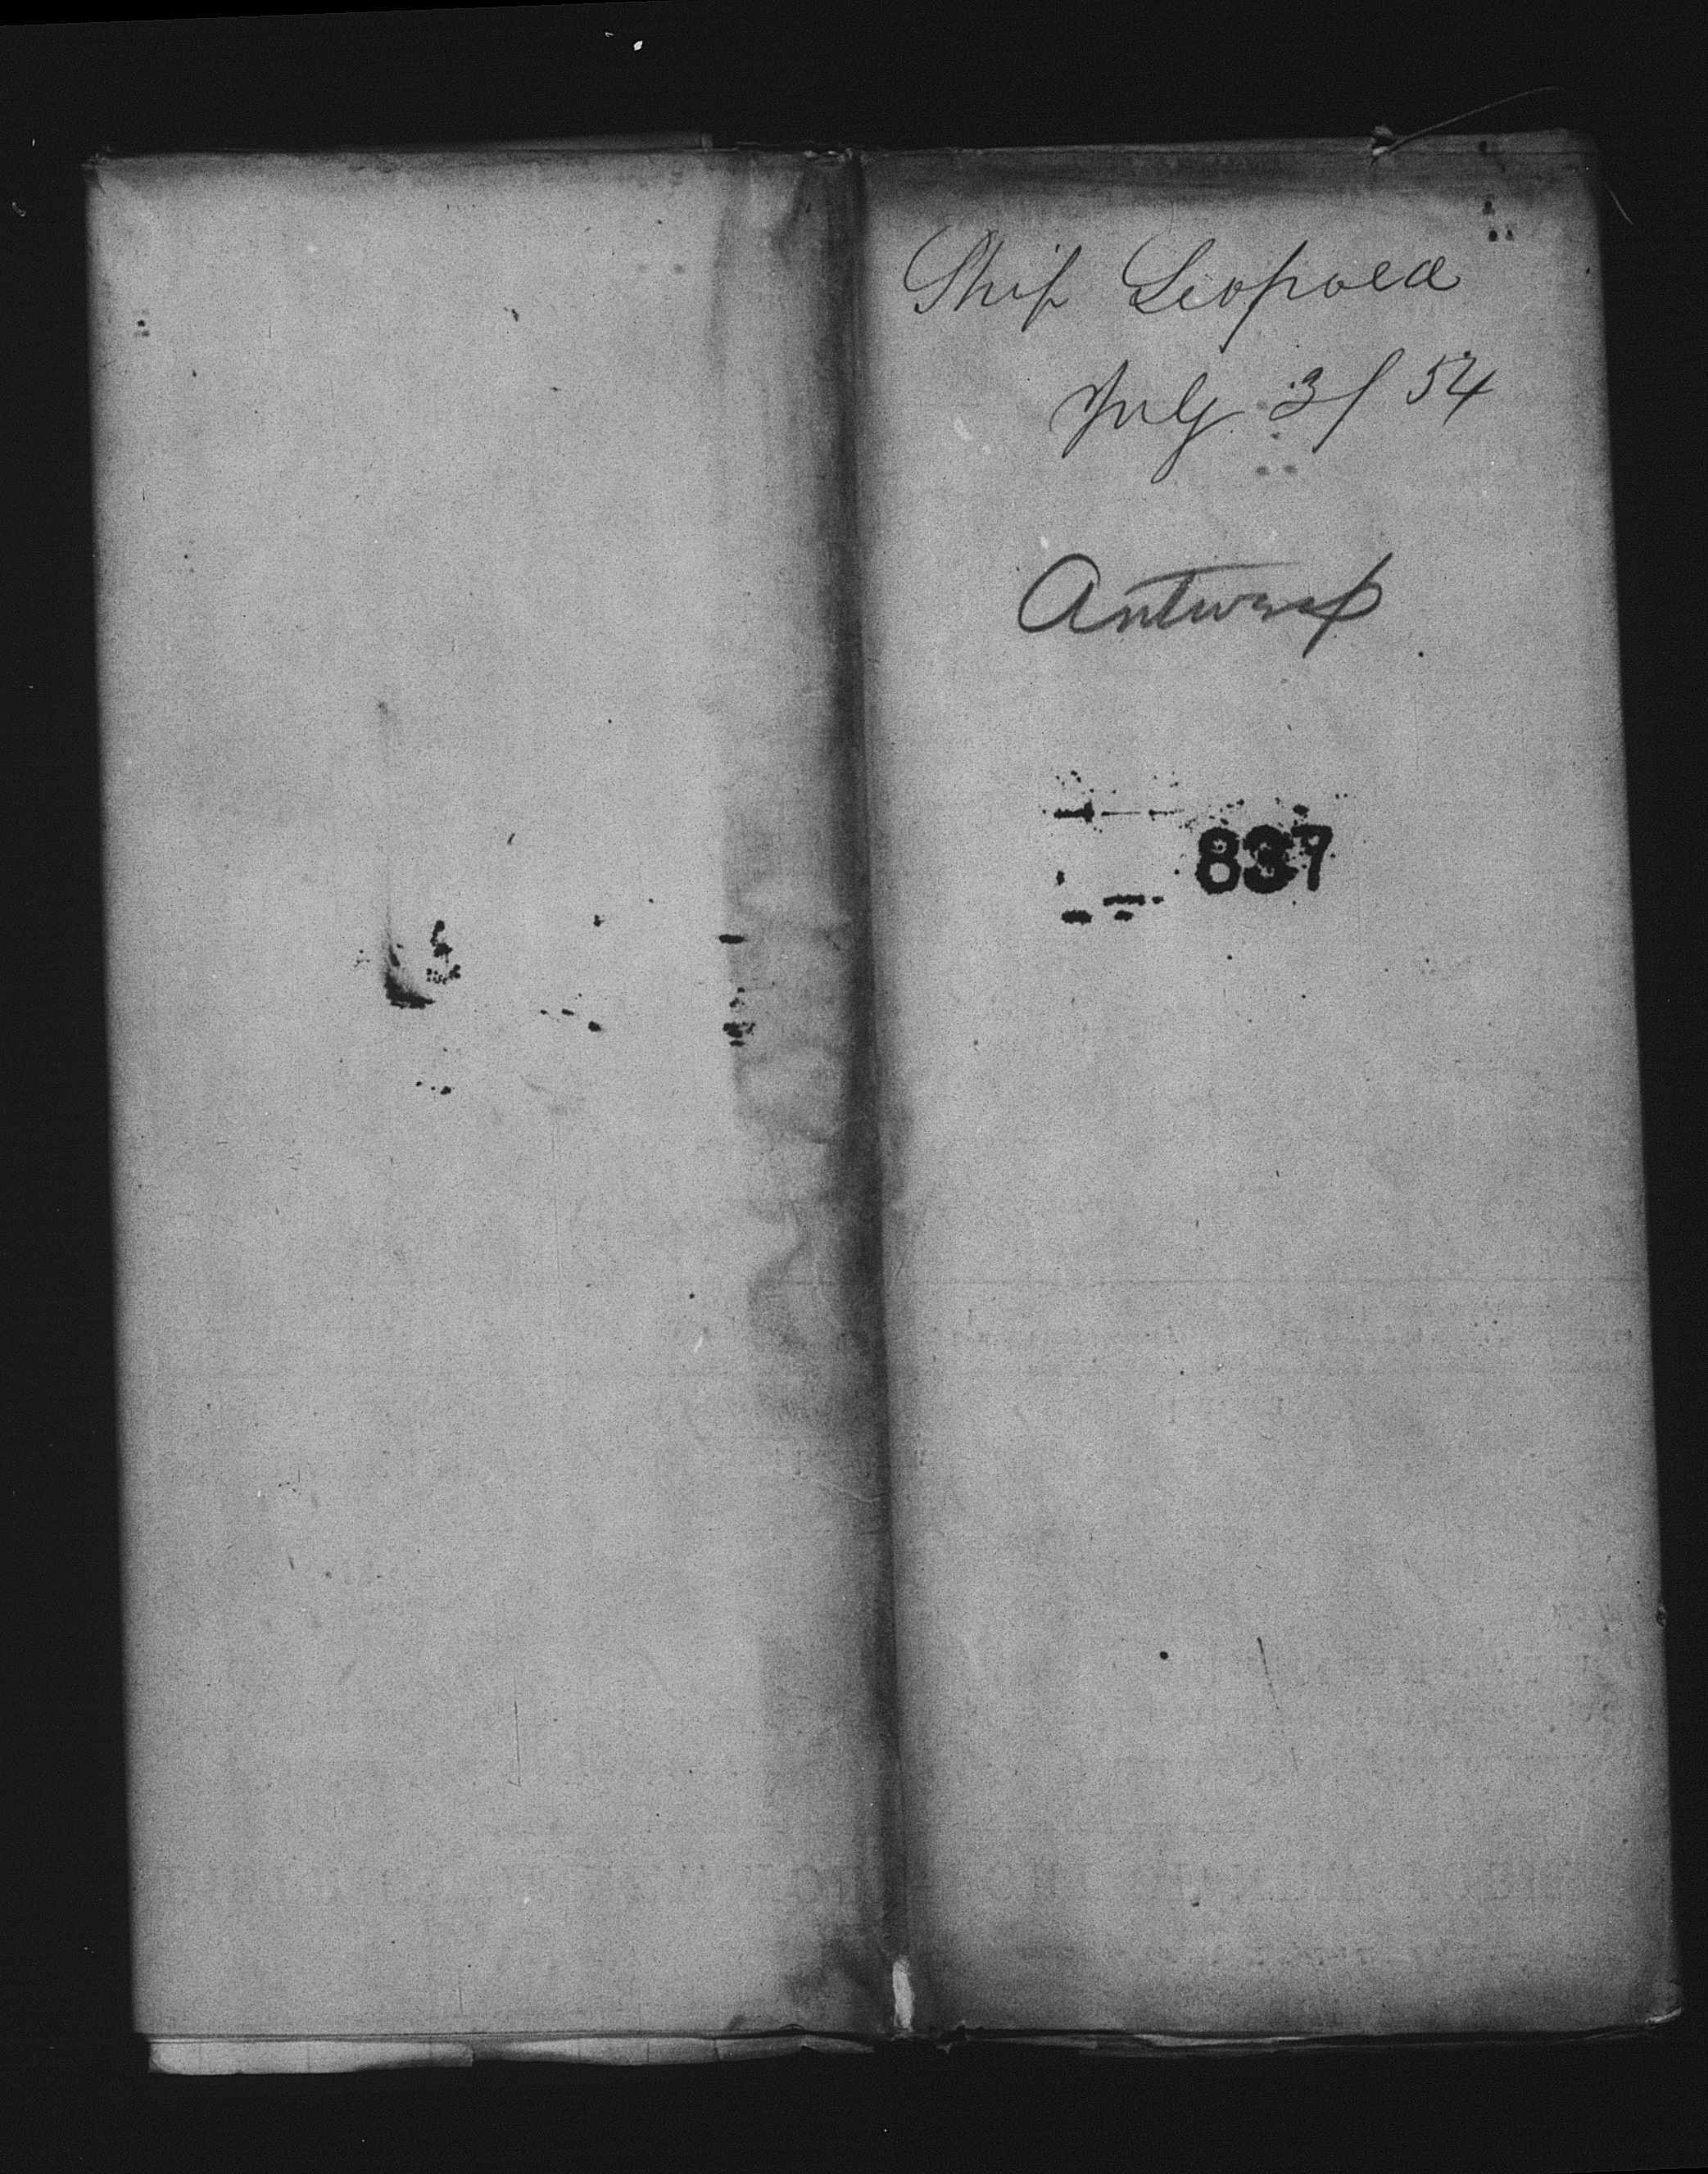 Ship Leopold
July 3/54
Antwerp
837